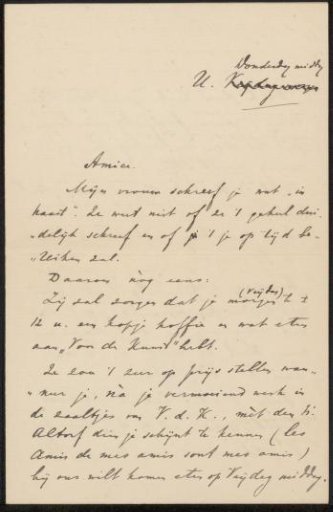 Donderdag middag
U.
Amice.
Mijn vrouw schreef je wat „in
haast". Ze weet niet of ze 't geheel dui-
delijk schreef en of je 't je op tijd be-
reiken zal.
Daarom nòg eens:
Zij zal zorgen dat je morgen (Vrijdag) te ±
12 u. een kopje koffie en wat eten
aan „Voor de Kunst" hebt.
Ze zou 't zeer op prijs stellen wan-
neer je, na je vermoeiend werk in
de zaaltjes van V. d. K., mèt den hr.
Altorf dien je schijnt te kennen (les
Amis de mes amis sont mes amis)
bij ons wilt komen eten op Vrijdag middag.